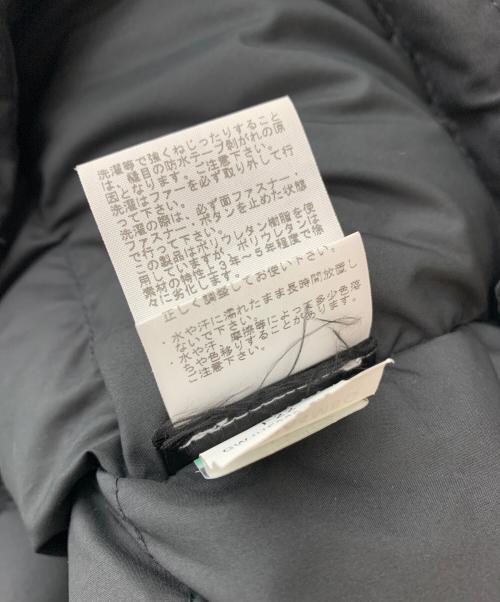 洗濯等で強くねじったりすること
は、縫目の防水テープ剥がれの原
因となります。ご注意下さい。
洗濯はファーを必ず取り外して行
って下さい。
洗濯の際は、必ず面ファスナー・
ファスナー・ボタンを止めた状態
で行って下さい。
この製品はポリウレタン樹脂を使
用していますが、ポリウレタンは
素材の特性上3年〜5年程度で徐
々に劣化します。
正しく調整してお使い下さい。
・水や汗に濡れたまま長時間放置し
ないで下さい。
・水や汗、摩擦等によって多少色落
ちや色移りすることがあります。
ご注意下さい。